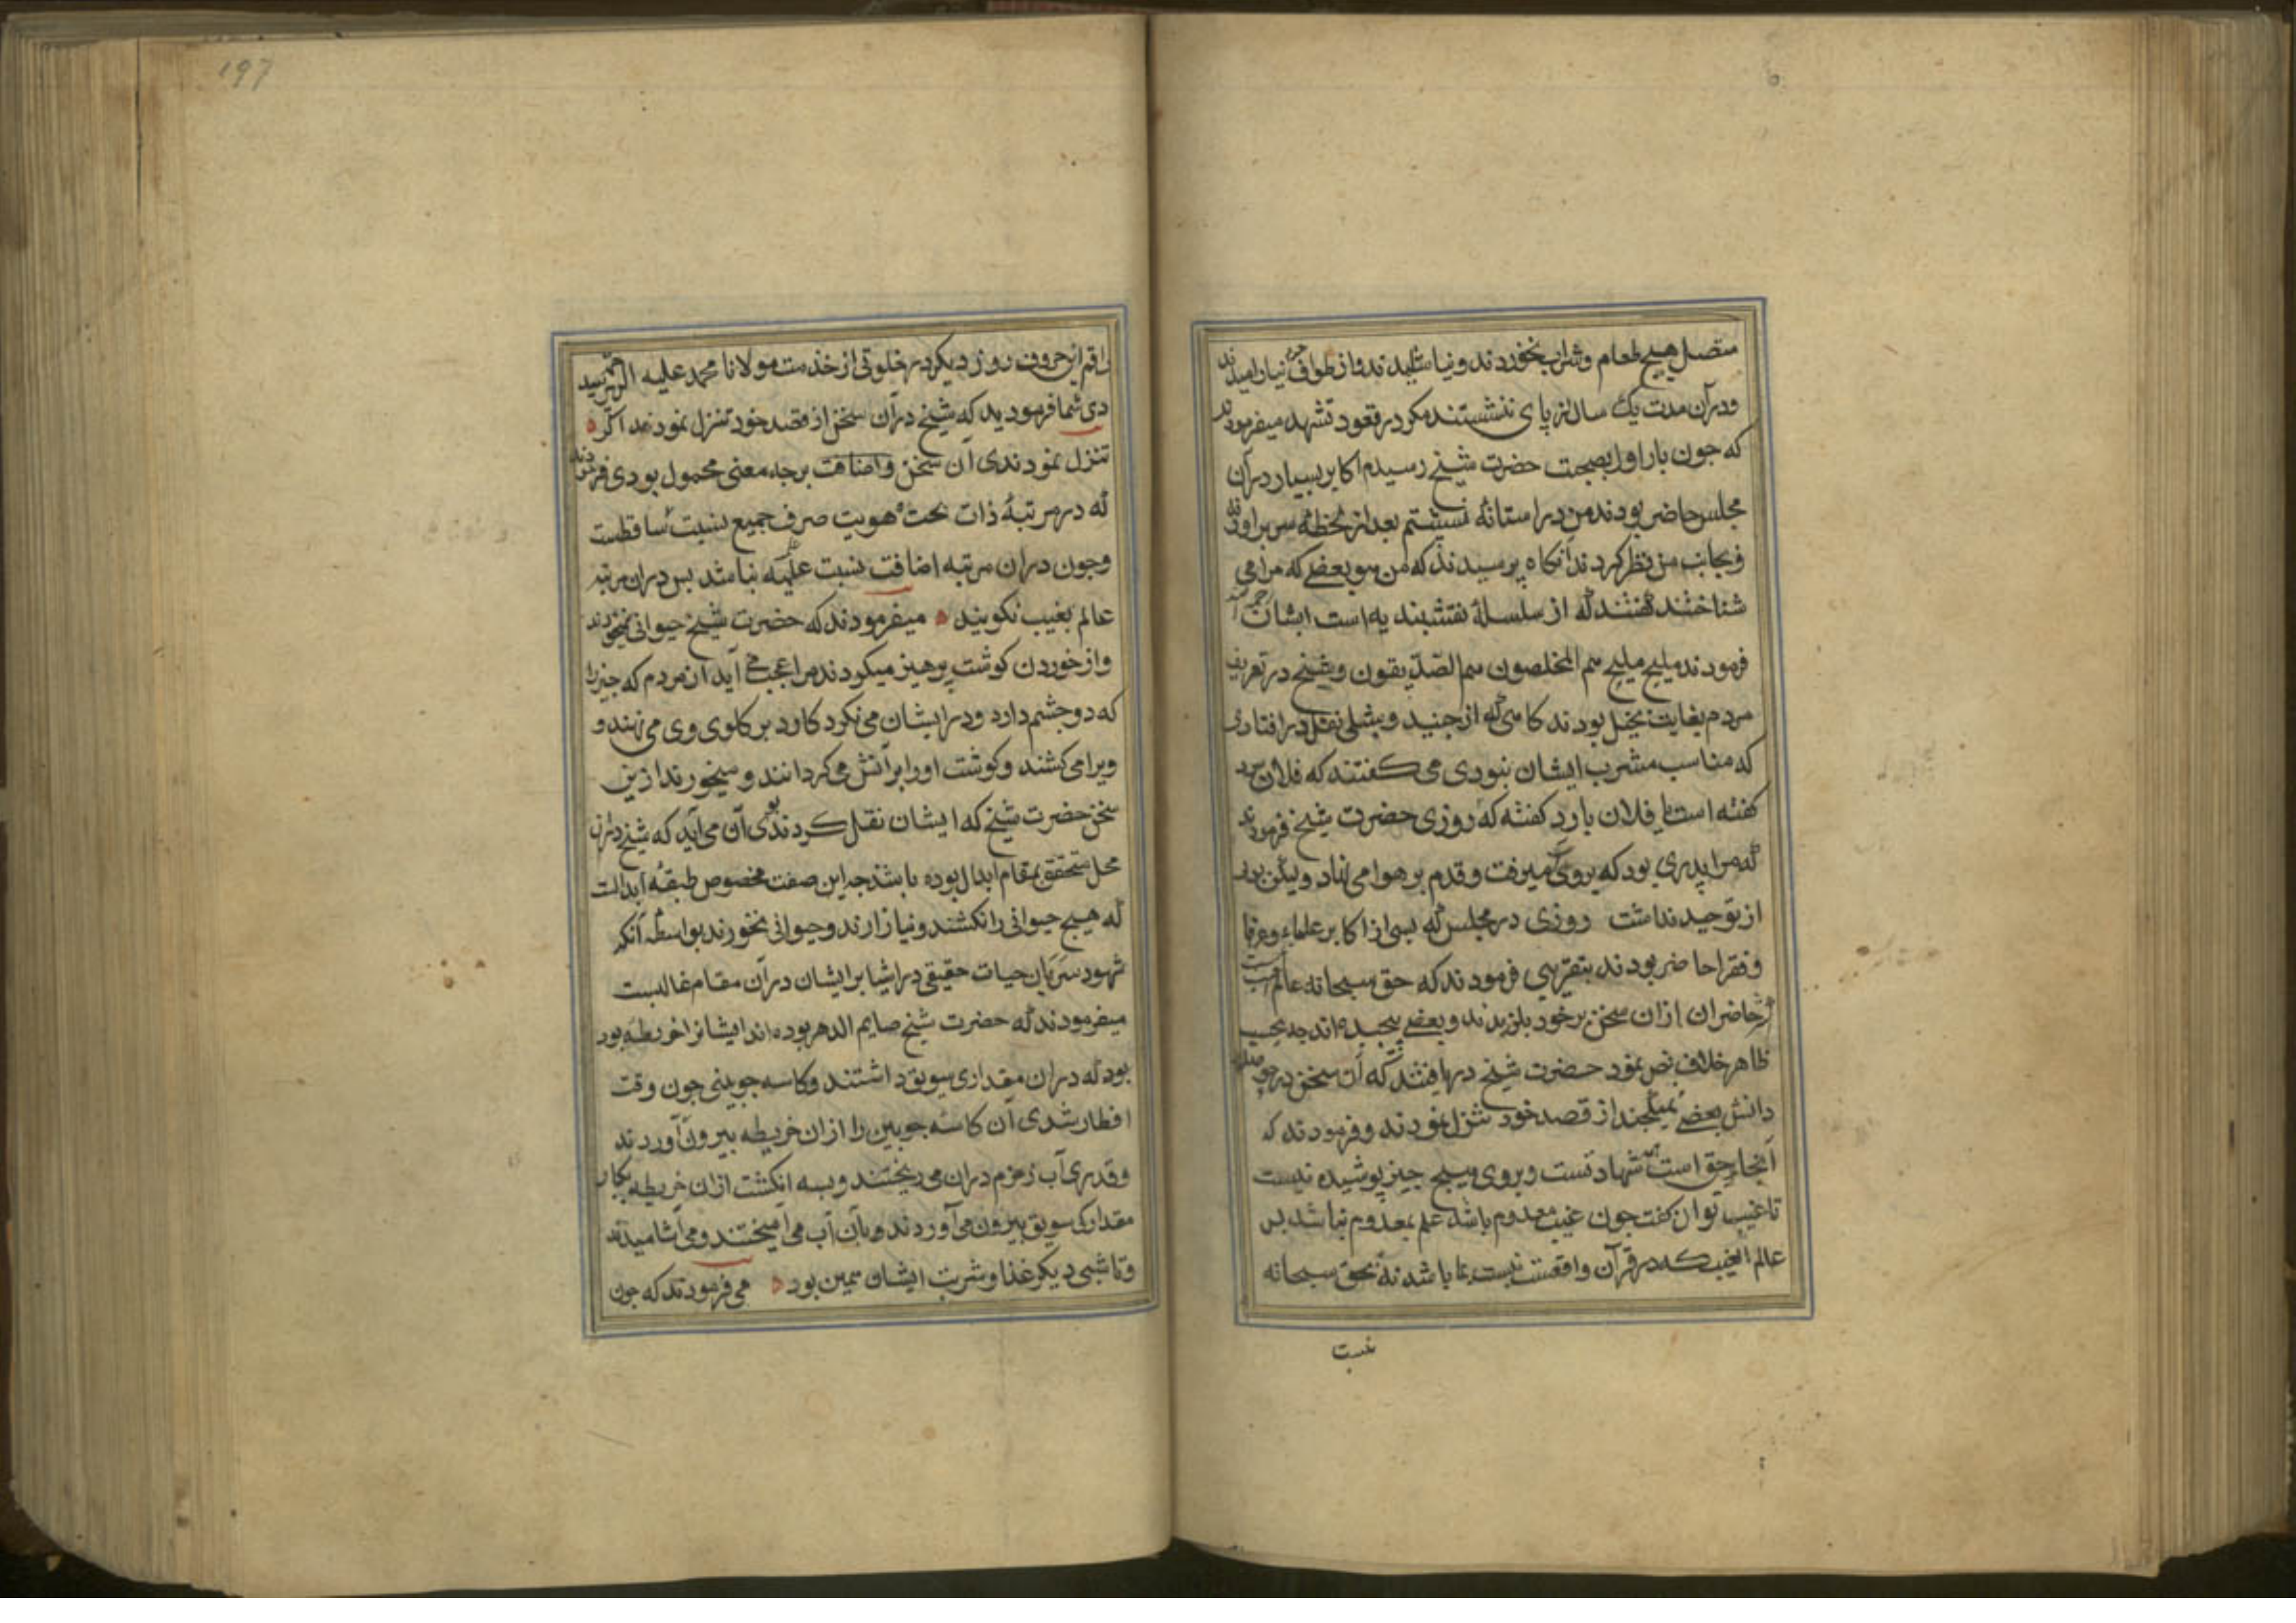 متصل هیچ طعام و شراب نخوردند و نیاشامیدند و از طواف حرم نیارامیدند
و در آن مدت یک سال از پای ننشستند مکر در قعود تشهد میفرمودند
که جون بار اول بصحبت حضرت شیخ رسیدم اکابر بسیار در آن
مجلس حاضر بودند من در استانه نشستم بعد از لحظه سر براوردند
و بجانب من نظر کردند آنکاه پرسیدند که من هو بعضی که مرا می
شناختند کفتند که از سلسلهٔ نقشبندیه است ایشان
فرمودند ملیح ملیح هم المخلصون هم الصدیقون و شیخ در تعریف
مردم بغایت بخیل بودند کاهی که از جنید و شبلی نقل در افتادی
که مناسب مشرب ایشان نبودی می کفتند که فلان سرد
کفته است یا فلان بارد کفته که روزی حضرت شیخ فرمودند
که مرا پدری بود که بر روی آب میرفت و قدم بر هوا می نهاد ولیکن بوی
از توحید نداشت روزی در مجلس که بسی از اکابر علما و عرفا
و فقرا حاضر بودند بتقریبی فرمودند که حق سبحانه عالم الغیب نیست
حاضران ازان سخن بر خود بلرزیدند و بعضی پیچیده اند جه بحسب
ظاهر خلاف نص نمود حضرت شیخ دریافتند که آن سخن در حوصله
دانش بعضی نمیکنجد از قصد خود تنزل نمودند و فرمودند که
آنجا که حق است همه شهادتست و بر وی هیچ چیز پوشیده نیست
تا غیب توان کفت جون غیب معدوم باشد علم بمعدوم نباشد پس
عالم الغیب که در قرآن واقعست نسبت بما باشد نه بحق سبحانه
نسبت
197
راقم این حروف روز دیکر در خلوتی از خدمت مولانا محمد علیه الرحمه پرسید
دی شما فرمودید که شیخ در آن سخن از قصد خود تنزل نمودند اکر
تنزل نمودندی آن سخن و اضافت بر جه معنی محمول بودی فرمودند
که در مرتبهٔ ذات بحت و هویت صرف جمیع نسبتها ساقطست
و جون دران مرتبه اضافت نسبت علمیه نباشد پس دران مرتبه
عالم بغیب نکویند میفرمودند که حضرت شیخ حیوانی نمیخوردند
و از خوردن کوشت پرهیز میکردند مرا عجب می آید از مردم که جیزی را
که دو جشم دارد و در ایشان می نکرد کارد بر کلوی وی می نهند و
ویرا می کشند و کوشت اورا بر آتش می کردانند و میخورند ازین
سخن حضرت شیخ که ایشان نقل کردند بوی آن می آید که شیخ دران
محل متحقق بمقام ابدال بوده باشند جه این صفت مخصوص طبقهٔ ابدالست
که هیچ حیوانی را نکشند و نیازارند و حیوانی نخورند بواسطه آنکه
شهود سریان حیات حقیقی در اشیا بر ایشان در آن مقام غالبست
میفرمودند که حضرت شیخ صایم الدهر بوده اند ایشانرا خریطه بود
بود که دران مقداری سویق داشتند و کاسه جوبینی جون وقت
افطار شدی آن کاسه جوبین را ازان خریطه بیرون آوردند
و قدری آب زمزم دران می ریختند و بسه انکشت ازان خریطه یکبار
مقدارک سویق بیرون می آوردند و بآن آب می آمیختند و می آشامیدند
و تا شبی دیکر غذا و شربت ایشان همین بود می فرمودند که جون